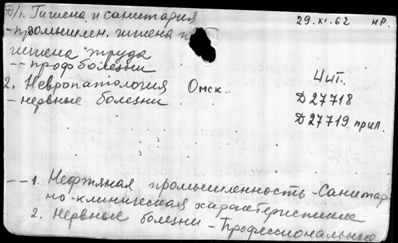 1. Гигиена и санитария
29.XI.62 НР.
- промышлен. гигиена и
гигиена труда
-- профболезни
2. Невропатология Омск.
- нервные болезни
Чит.
Д 27718
Д 27719 прил.
-- 1. Нефтяная промышленность - Санитар
но-клиническая характеристика
2. Нервные болезни - Профессиональные